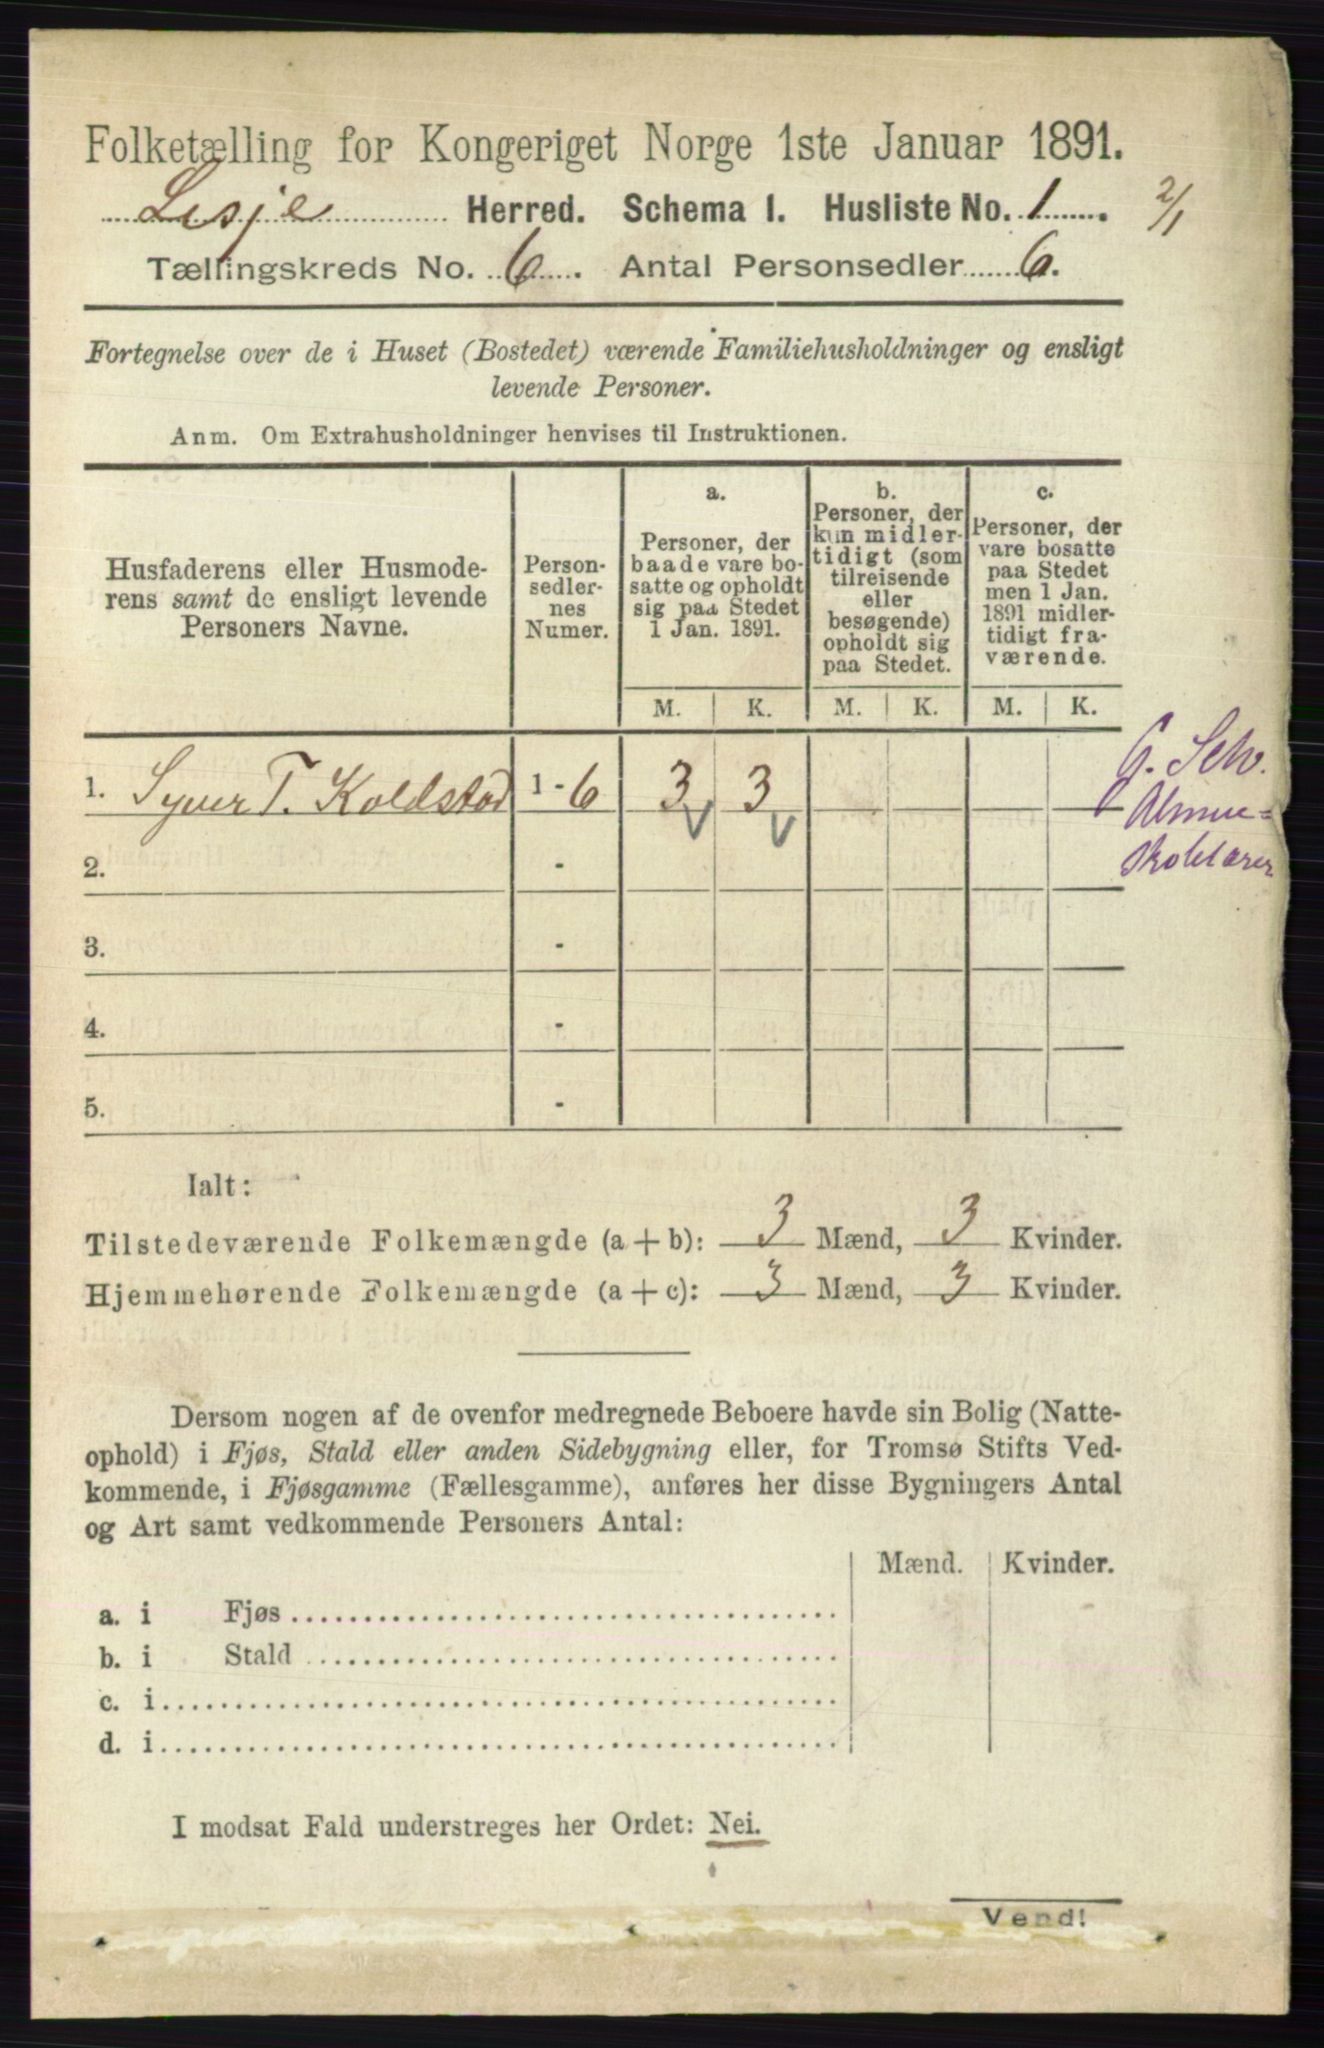 Folketælling for Kongeriget Norge 1ste Januar 1891.
Lesje Herred. Schema 1. Husliste No. 1. 2/1
Tællingskreds No. 6. Antal Personsedler 6.
Fortegnelse over de i Huset (Bostedet) værende Familiehusholdninger og ensligt
levende Personer.
Anm. Om Extrahusholdninger henvises til Instruktionen.
Husfaderens eller Husmode-
rens samt de ensligt levende
Personers Navne.
Person-
sedler-
nes
Numer.
a.
Personer, der
baade vare bo-
satte og opholdt
sig paa Stedet
1 Jan. 1891.
b.
Personer, der
kun midler-
tidigt (som
tilreisende
eller
besøgende)
opholdt sig
paa Stedet.
c.
Personer, der
vare bosatte
paa Stedet
men 1 Jan.
1891 midler-
tidigt fra-
værende.
M. K. M. K. M. K.
1. Syver T. Koldstad 1 - 6 3 3
G. Selv.
Almue-
skolelærer
2. -
3. -
4. -
5. -
Ialt:
Tilstedeværende Folkemængde (a + b): 3 Mænd, 3 Kvinder.
Hjemmehørende Folkemængde (a + c): 3 Mænd, 3 Kvinder.
Dersom nogen af de ovenfor medregnede Beboere havde sin Bolig (Natte-
ophold) i Fjøs, Stald eller anden Sidebygning eller, for Tromsø Stifts Ved-
kommende, i Fjøsgamme (Fællesgamme), anføres her disse Bygningers Antal
og Art samt vedkommende Personers Antal:
Mænd. Kvinder.
a. i Fjøs
b. i Stald
c. i
d. i
I modsat Fald understreges her Ordet: Nei.
Vend!